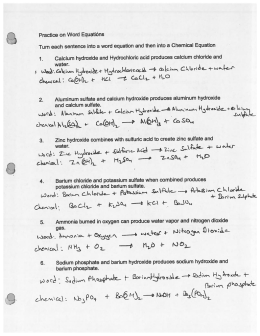 Practice on Word Equations
Turn each sentence into a word equation and then into a Chemical Equation
1. Calcium hydroxide and Hydrochloric acid produces calcium chloride and
water.
word: Calcium Hydroxide + Hydrochloric acid → calcium Chloride + water
chemical: Ca(OH)₂ + HCl → CaCl₂ + H₂O
2. Aluminum sulfate and calcium hydroxide produces aluminum hydroxide
and calcium sulfate.
word: Aluminum Sulfate + Calcium Hydroxide → Aluminum Hydroxide + calcium
sulfate
chemical: Al₂(SO₄)₃ + Ca(OH)₂ → Al(OH)₃ + CaSO₄
3. Zinc hydroxide combines with sulfuric acid to create zinc sulfate and
water.
word: Zinc Hydroxide + Sulfuric Acid → Zinc Sulfate + water
chemical: Zn(OH)₂ + H₂SO₄ → ZnSO₄ + H₂O
4. Barium chloride and potassium sulfate when combined produces
potassium chloride and barium sulfate.
word: Barium Chloride + Potassium Sulfate → Potassium Chloride
+ Barium Sulfate
Chemical: BaCl₂ + K₂SO₄ → KCl + BaSO₄
5. Ammonia burned in oxygen can produce water vapor and nitrogen dioxide
gas.
word: Ammonia + Oxygen → water + Nitrogen Dioxide
chemical: NH₃ + O₂ → H₂O + NO₂
6. Sodium phosphate and barium hydroxide produces sodium hydroxide and
barium phosphate.
word: Sodium Phosphate + Barium Hydroxide → Sodium Hydroxide +
Barium phosphate
chemical: Na₃PO₄ + Ba(OH)₂ → NaOH + Ba₃(PO₄)₂